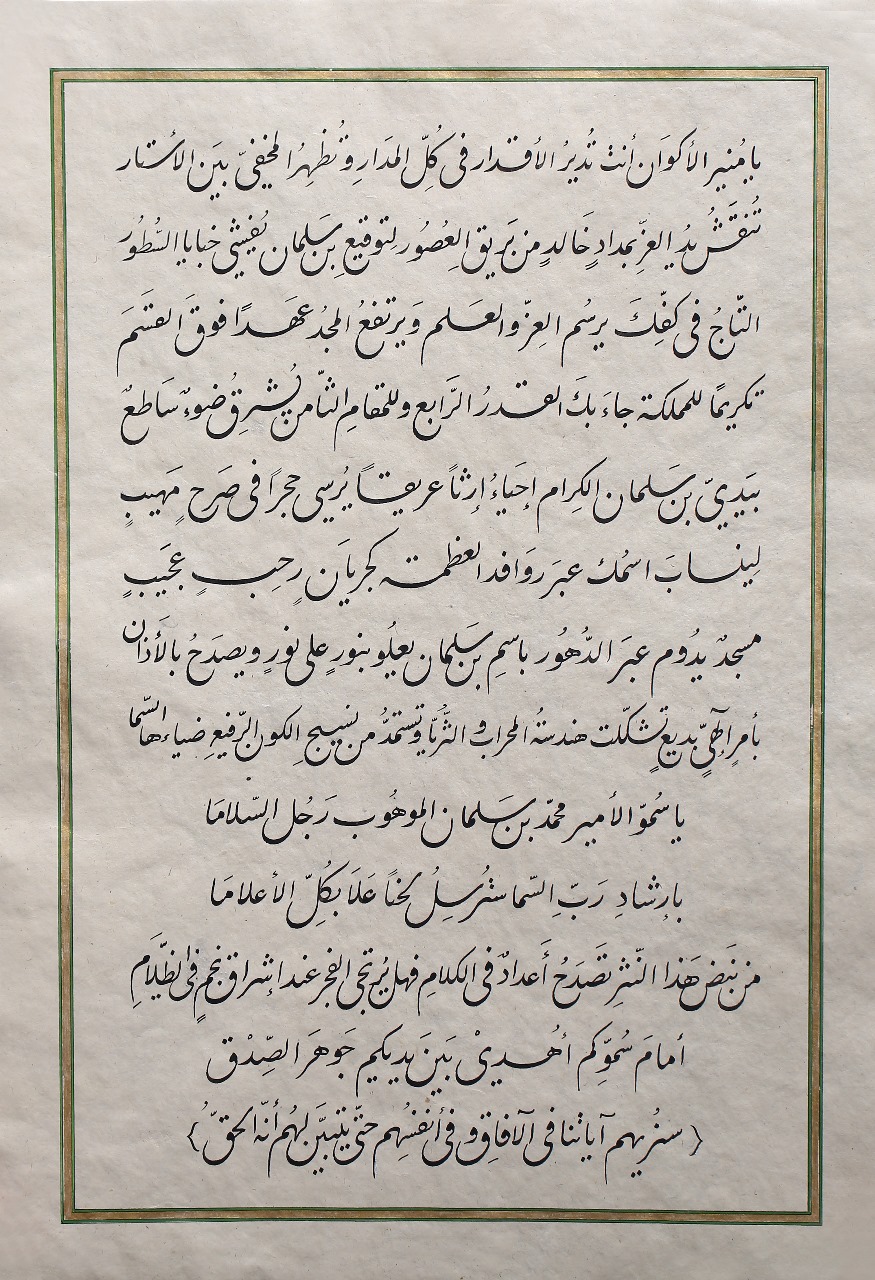 يا مُنير الأكوَان أنتَ تُديرُ الأقدار في كُلّ المَدَارِ وتُظهِرُ المخفيّ بَيَن الأستار
تُنقَشُ يدُ العزِّ بمدادٍ خَالدٍ من بَريق العِصُور لِتوقيعِ بن سَلمان يُفيشي خبايا السُّطُور
التّاجُ في كفِّكَ يرسُم العِزّ والعَلم وَيرتفعُ المجدُ عهَدًا فوقَ القسَمَ
تكريمًا للمملكة جاءَ بكَ القدرُ الرَّابع وللمقامِ الثّامن يُشرِقُ ضوءٌ سَاطعٌ
بيَديّ بن سَلمان الكِرام إحَياءُ إرثاً عريقاً يُرسي حجرًا في صَرحٍ مَهيبٍ
لِينسابَ اسمُك عبَر روَافد العظمة كجريَانٍ رحِبٍ عجَيبٍ
مسجدٌ يدُوم عبَر الدُّهُور باسمِ بن سَلمان يعلُو بنورٍ على نورٍ ويصدَحُ بالأذان
بأمرٍ إلٰهيٍّ بديعٍ تشكّلت هندسةُ المحراب و الثُّريَّا وتستمدُّ من نسيج الكون الرّفيعِ ضياءها السّما
يا سُموّ الأمير محمّد بن سَلمان الموهُوب رَجُل السّلامَا
بإرشادِ رَبّ السّما سنُرسِلُ لحناً عَلَا بكُلّ الأعلامَا
من نبَض هَذا النّثرِ تصَدَحُ أَعدادٌ في الكلامِ فهل يُرتجى الفجر عند إشراق نجمٍ في الظّلَامِ
أمامَ سُموِّكم أهُديْ بَيَن يديكم جَوهَرَ الصِّدْق
﴿ سنُريهم آياتنا في الآفاقِ و في أنفسُهِم حتّى يتبيَّن لهُم أنّه الحقّ ﴾